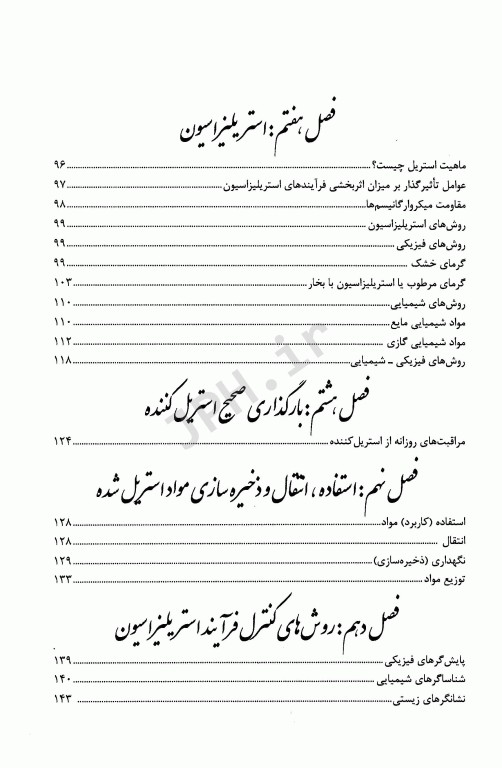 فصل هفتم: استریلیزاسیون
ماهیت استریل چیست؟ ۹۶
عوامل تأثیرگذار بر میزان اثربخشی فرآیندهای استریلیزاسیون ۹۷
مقاومت میکروارگانیسم‌ها ۹۸
روش‌های استریلیزاسیون ۹۹
روش‌های فیزیکی ۹۹
گرمای خشک ۹۹
گرمای مرطوب یا استریلیزاسیون با بخار ۱۰۳
روش‌های شیمیایی ۱۱۰
مواد شیمیایی مایع ۱۱۰
مواد شیمیایی گازی ۱۱۲
روش‌های فیزیکی ـ شیمیایی ۱۱۸
فصل هشتم: بارگذاری صحیح استریل کننده
مراقبت‌های روزانه از استریل‌کننده ۱۲۴
فصل نهم: استفاده، انتقال و ذخیره سازی مواد استریل شده
استفاده (کاربرد) مواد ۱۲۸
انتقال ۱۲۸
نگهداری (ذخیره‌سازی) ۱۲۹
توزیع مواد ۱۳۳
فصل دهم: روش‌های کنترل فرآیند استریلیزاسیون
پایش‌گرهای فیزیکی ۱۳۹
شناساگرهای شیمیایی ۱۴۰
نشانگرهای زیستی ۱۴۳
JPH.ir